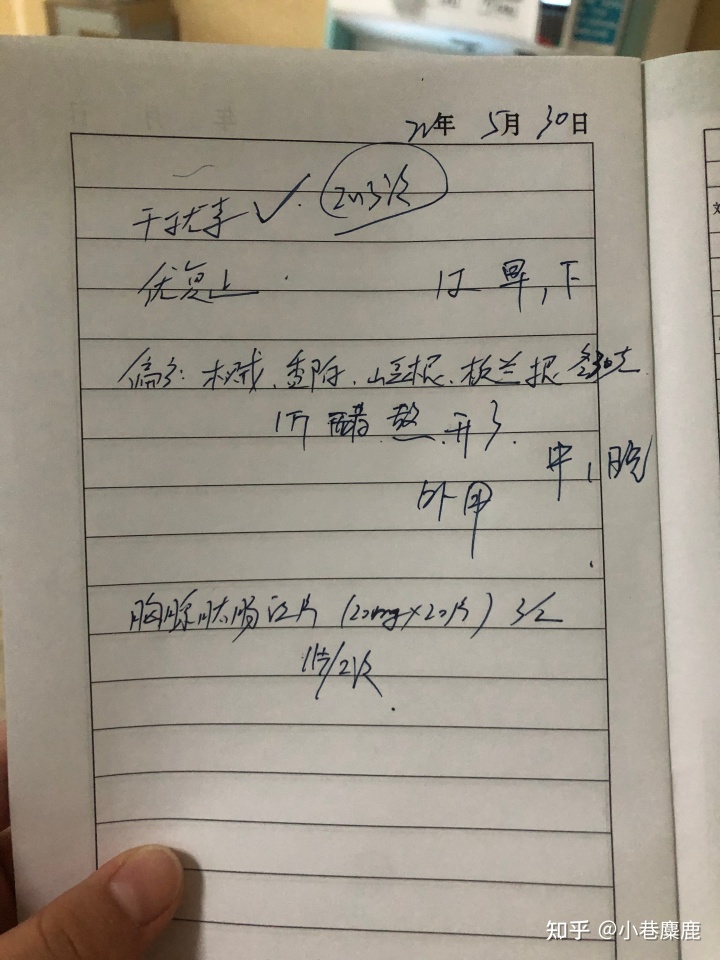 22年 5月 30日
干扰素 ✓. 2~3次
优复上 1次 早,下
偏方: 木贼、香附、山豆根、板兰根 各30克
醋 敷 开了
中,晚
外用
胸腺肽肠溶片 (20mg×20片) 3/2
1片/2次
知乎 @小巷麋鹿